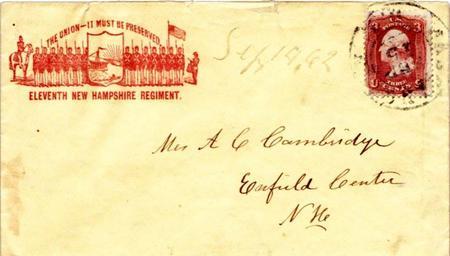 THE UNION—IT MUST BE PRESERVED.
ELEVENTH NEW HAMPSHIRE REGIMENT.
Sep 18, 62
U S POSTAGE
3 3
THREE CENTS
Mrs A C Cambridge
Enfield Center
N He